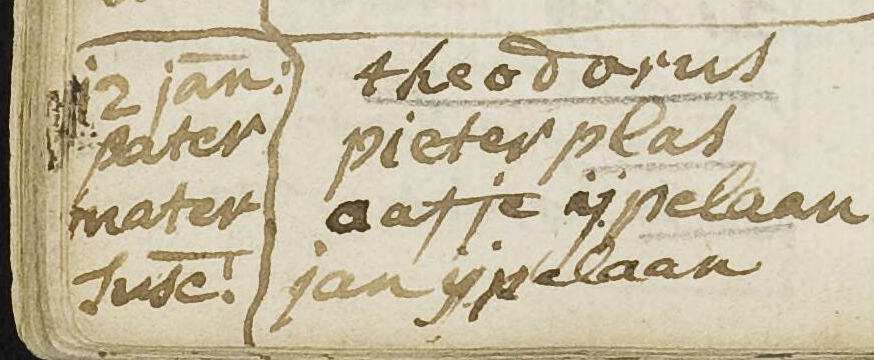 j2 jan: theodorus
pater pieter plas
mater aafje ijpelaan
susc: jan ijpelaan